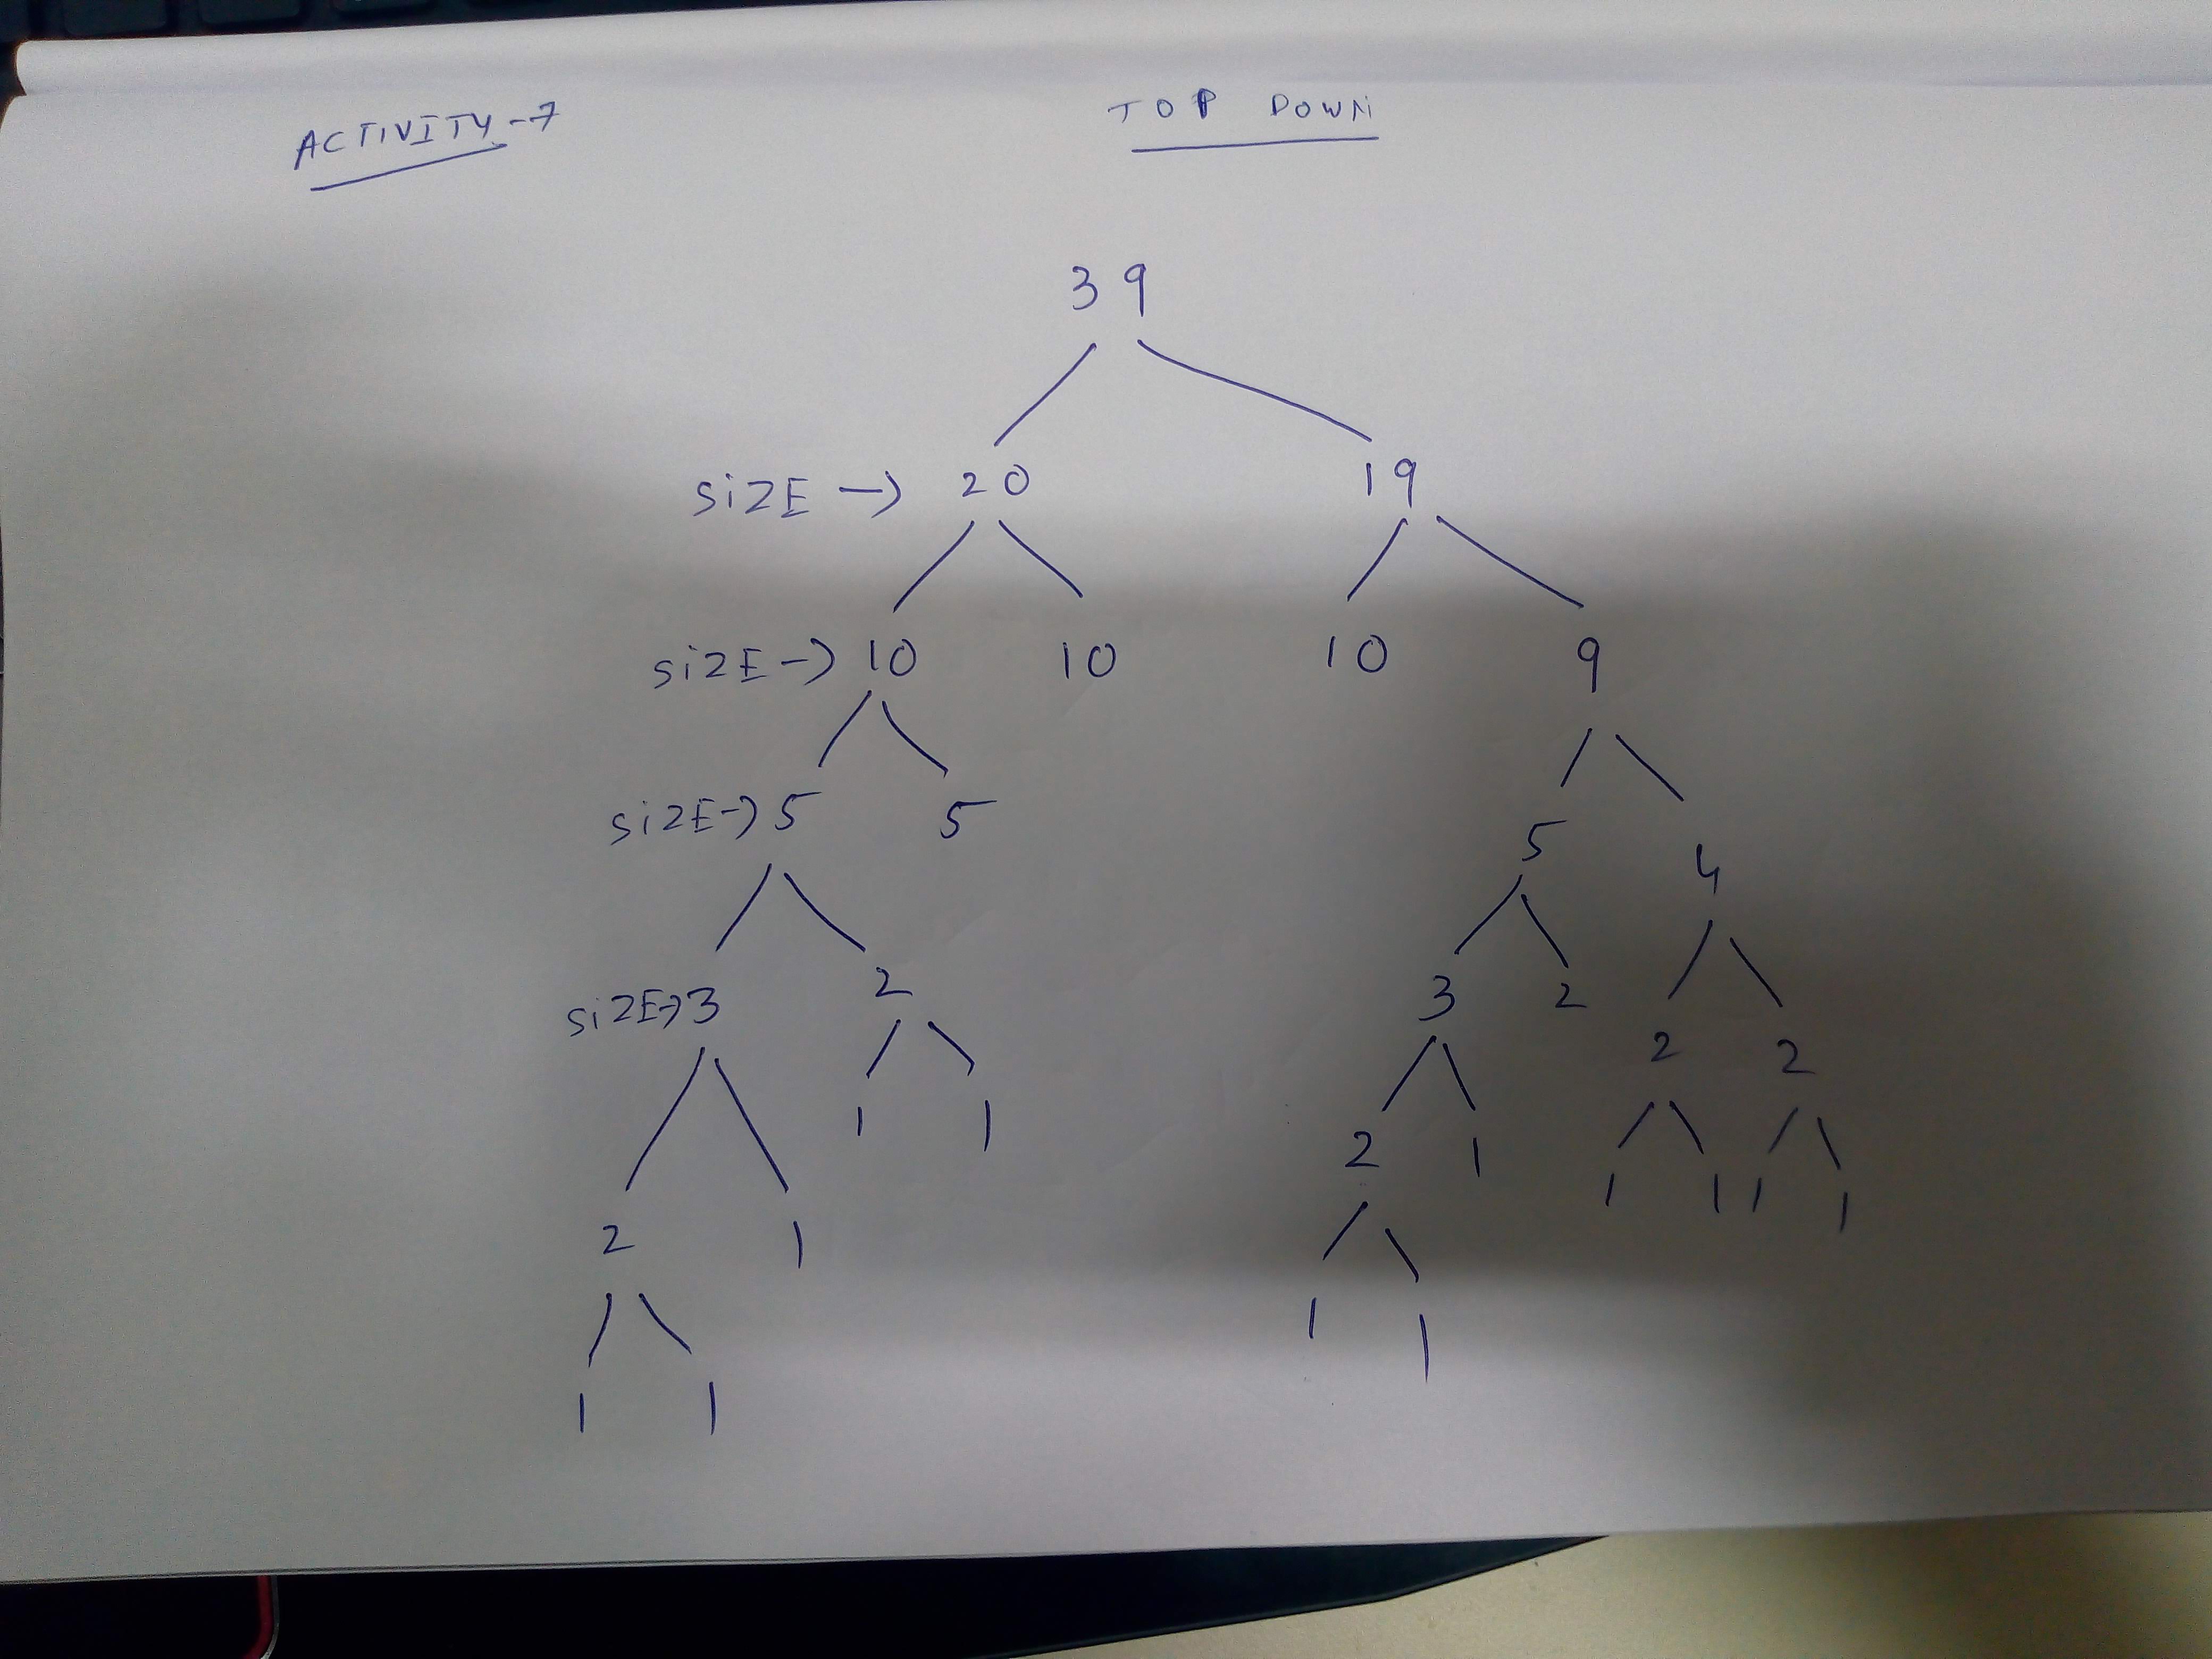 ACTIVITY-7
TOP DOWN
39
SiZE -> 20 19
SiZE -> 10 10 10 9
SiZE -> 5 5 5 4
SiZE -> 3 2 3 2 2 2
1 1 2 1 1 1 1 1
2 1
1 1
1 1